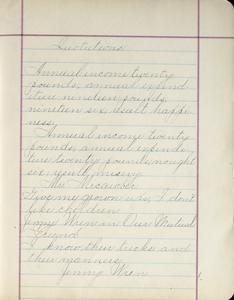 Quotations
Annual income twenty
pounds, annual expend
iture nineteen pounds,
nineteen six, result happi
ness,
Annual income twenty
pounds, annual expendi
ture twenty pounds, nought
six, result, misery
Mr. Micawber
Give me grown ups, I don't
like children
Jenny Wren in Our Mutual
Friend
I know their tricks and
their manners,
Jenny Wren